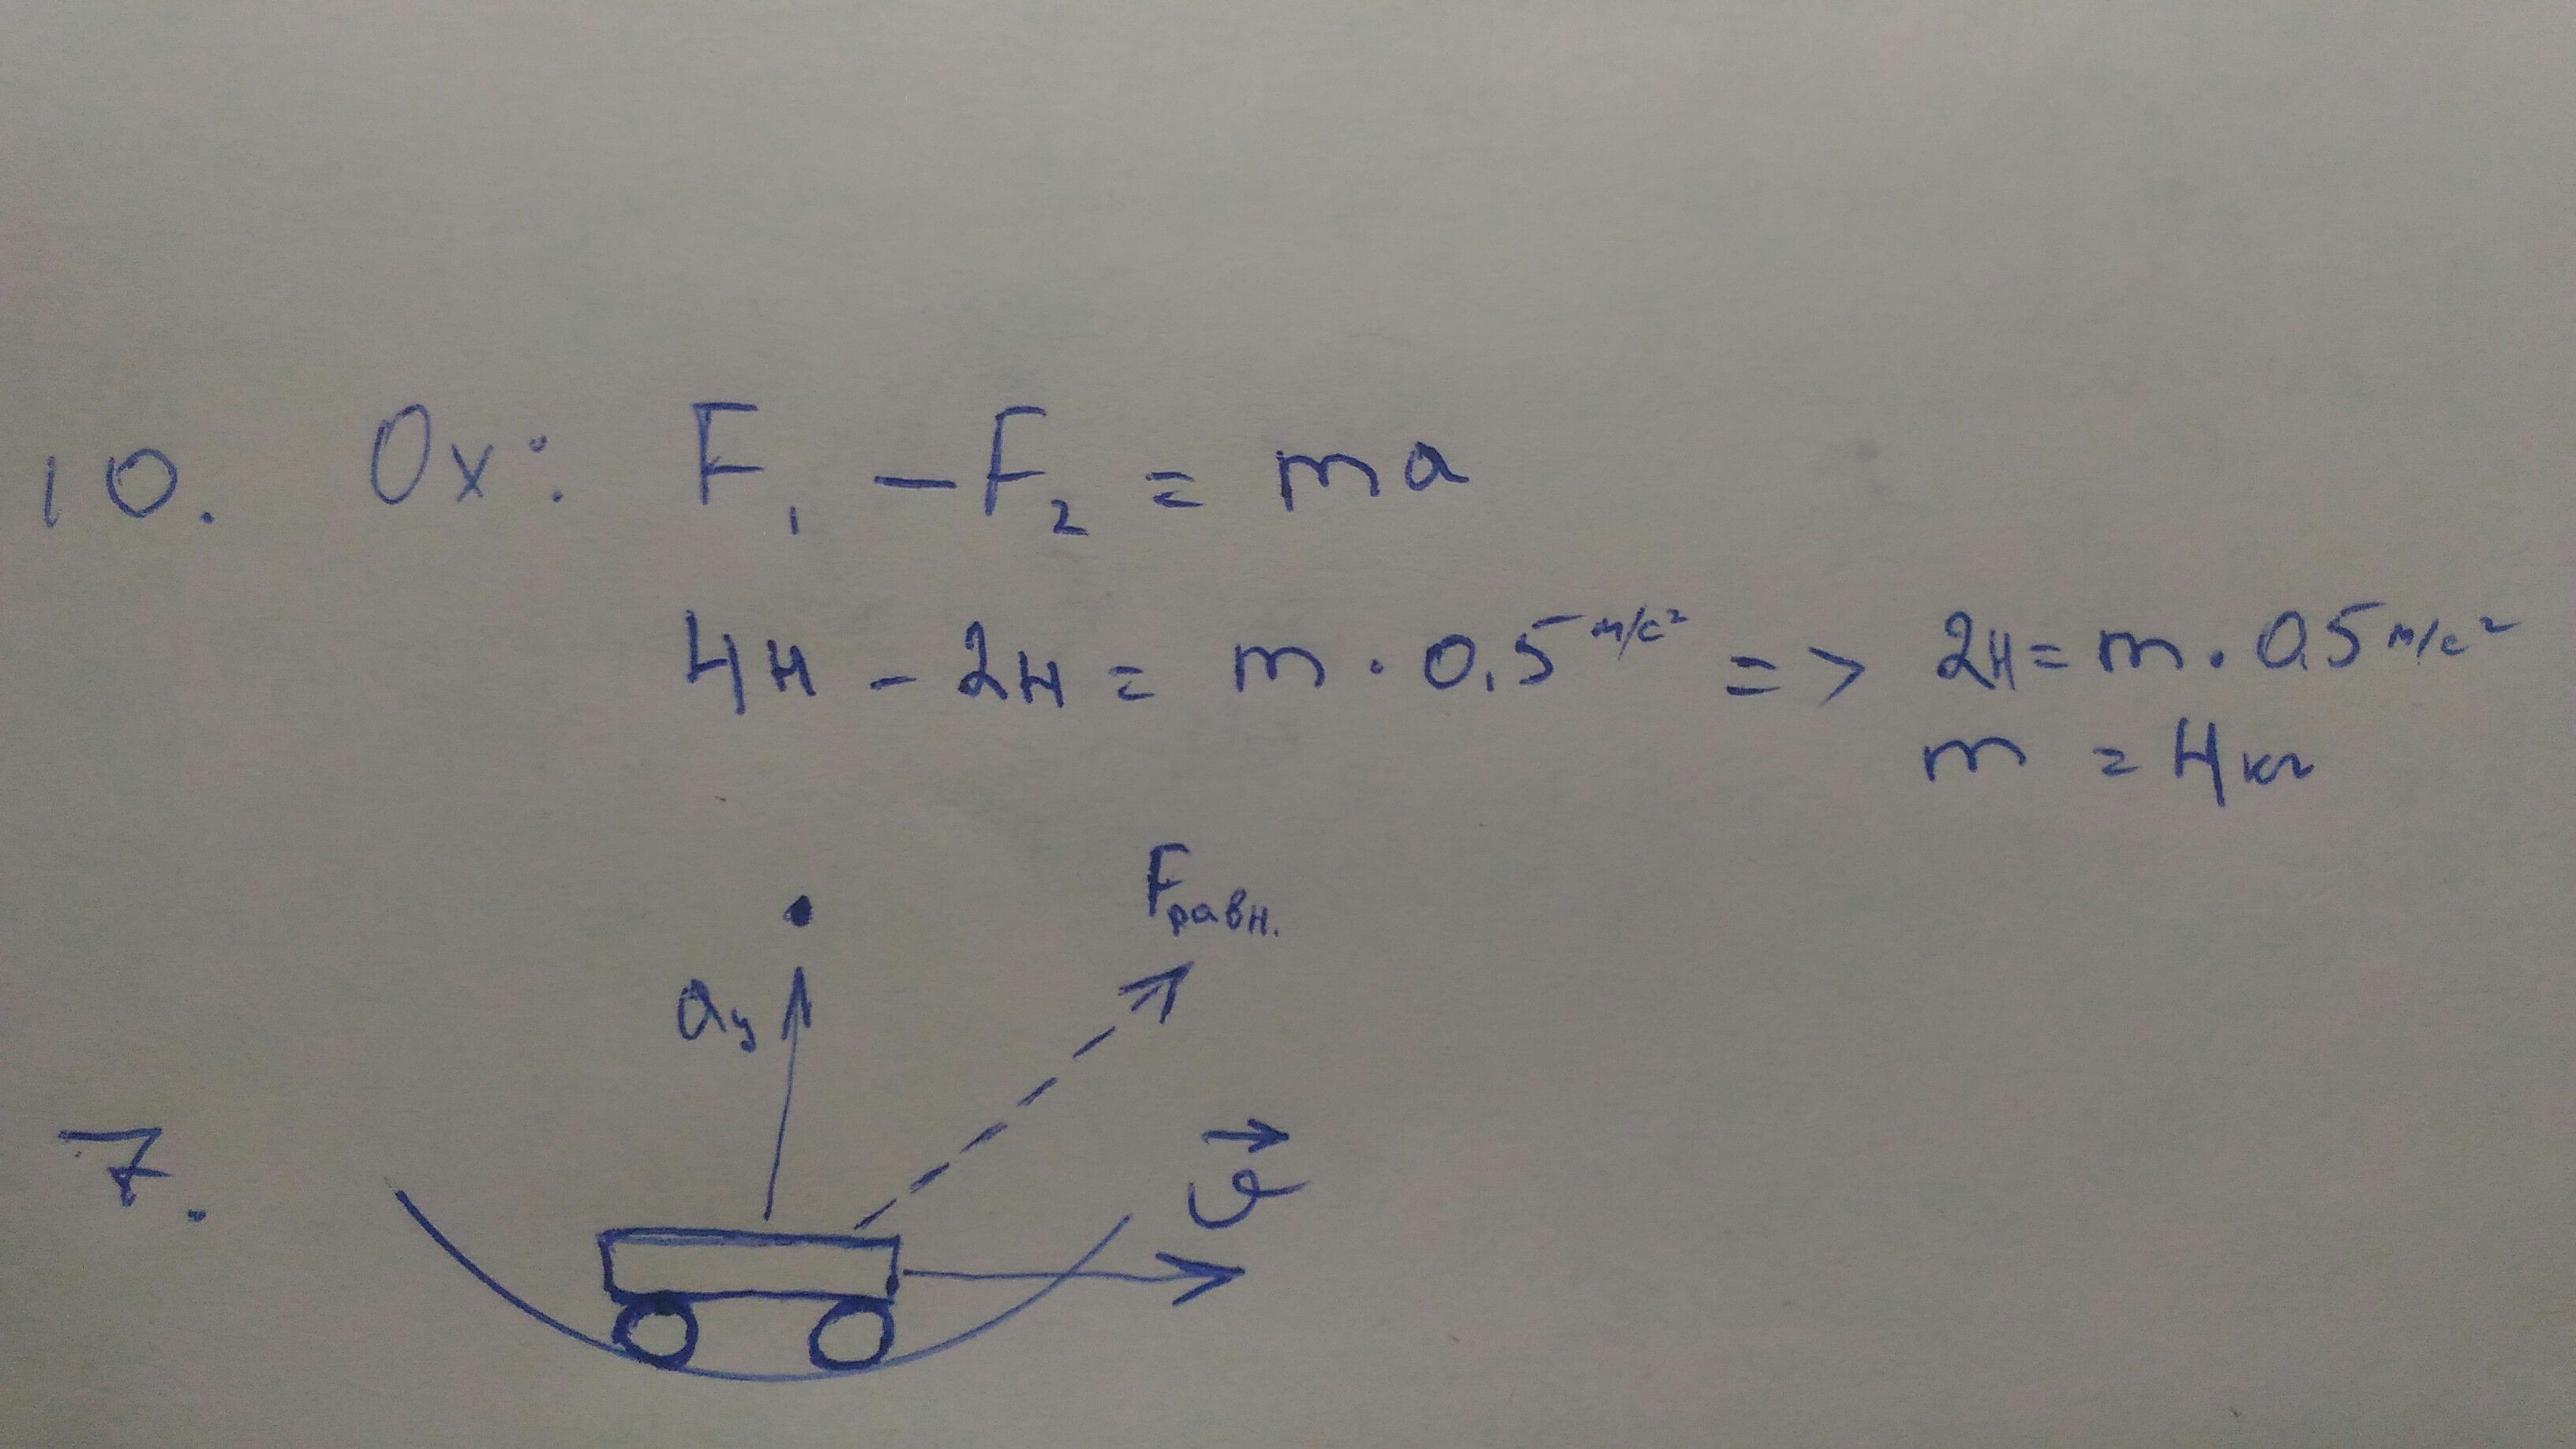 10. Ox: F₁ - F₂ = ma
4н - 2н = m · 0,5 м/с² => 2н = m · 0,5 м/с²
m = 4 кг
Fравн.
aу
7.
v⃗